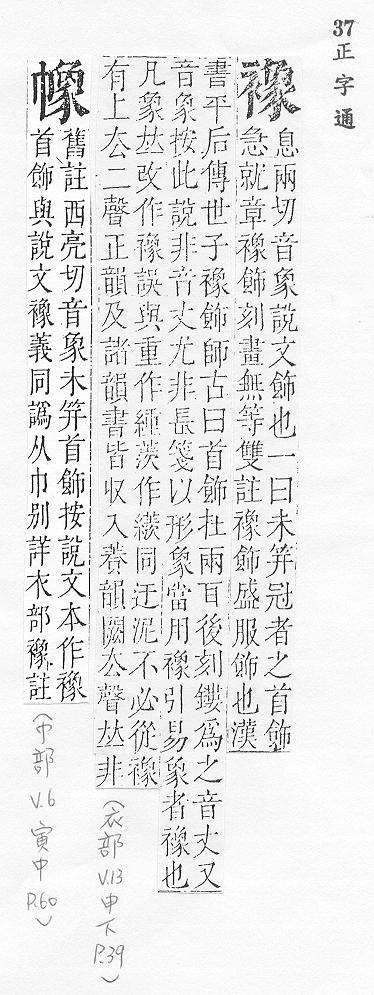 37
正字通
襐
息兩切音象說文飾也一曰未筓冠者之首飾
急就章襐飾刻畫無等雙註襐飾盛服飾也漢
書平后傳世子襐飾師古曰首飾在兩耳後刻鏤爲之音丈又
音象按此說非音丈尤非長箋以形象當用襐引易象者襐也
凡象𠀤改作襐誤與重作緟茨作同迂泥不必從襐
有上厺二聲正韻及諸韻書皆収入養韻闕厺聲𠀤非
(衣部 V.13 申下 P.39)
舊註西亮切音象未筓首飾按說文本作襐
首飾與說文襐義同譌从巾别詳衣部襐註
(巾部 V.6 寅中 P.60)